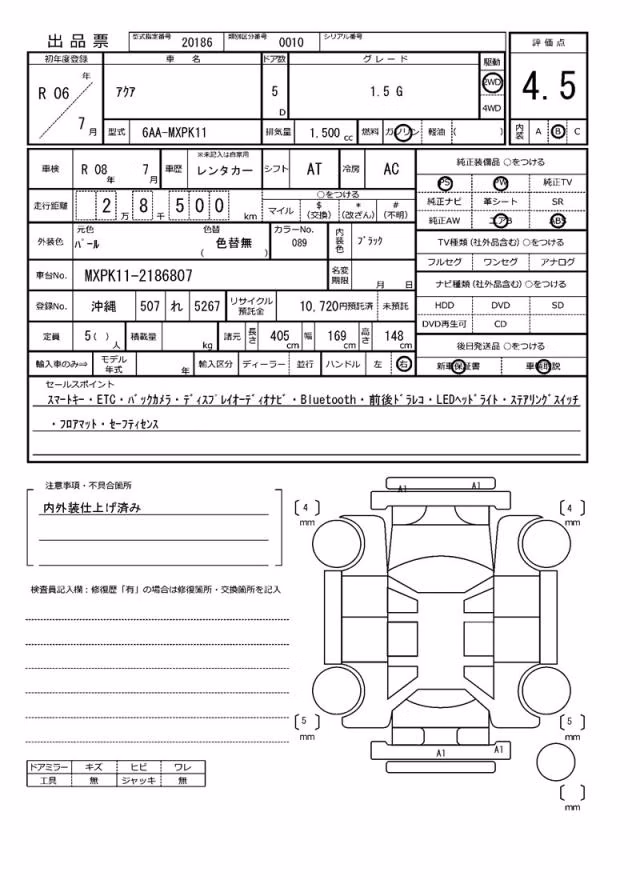 出品票
型式指定番号 20186 類別区分番号 0010 シリアル番号
評価点
初年度登録 車名 ドア数 グレード 駆動
R 06 年 7 月
アクア 5 D 1.5 G 2WD 4WD
4.5
型式 6AA-MXPK11 排気量 1.500 cc 燃料 ガソリン 軽油 ( )
内装 A B C
車検 R 08 年 7 月 車歴 ※未記入は自家用 レンタカー シフト AT 冷房 AC
純正装備品 ○をつける
PS PW 純正TV
純正ナビ 革シート SR
純正AW エアB ABS
走行距離 2 万 8 千 5 0 0 km
○をつける
マイル $ (交換) * (改ざん) # (不明)
外装色 元色 パール 色替 ( 色替無 ) カラーNo. 089 内装色 ブラック
TV種類 (社外品含む) ○をつける
フルセグ ワンセグ アナログ
車台No. MXPK11-2186807 名変期限 月 日
ナビ種類 (社外品含む) ○をつける
HDD DVD SD
DVD再生可 CD
登録No. 沖縄 507 れ 5267 リサイクル預託金 10,720円預託済 未預託
定員 5 ( ) 人 積載量 kg 諸元 長さ 405 cm 幅 169 cm 高さ 148 cm
後日発送品 ○をつける
新車保証書
輸入車のみ⇒ モデル年式 年 輸入区分 ディーラー 並行 ハンドル 左 右
セールスポイント
スマートキー・ETC・バックカメラ・ディスプレイオーディオナビ・Bluetooth・前後ドラレコ・LEDヘッドライト・ステアリングスイッチ
・フロアマット・セーフティセンス
注意事項・不具合箇所
内外装仕上げ済み
検査員記入欄：修復歴「有」の場合は修復箇所・交換箇所を記入
A1 A1
[ 4 ] mm [ 4 ] mm
[ 5 ] mm [ 5 ] mm
A1 A1
[ ] mm
ドアミラー キズ ヒビ ワレ
工具 無 ジャッキ 無